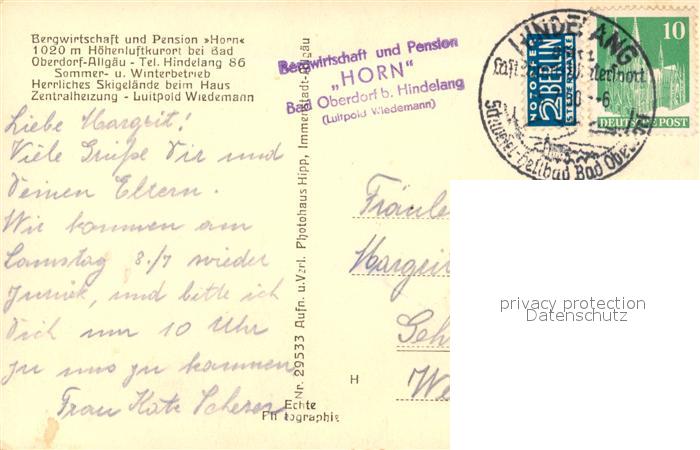 Bergwirtschaft und Pension »Horn«
1020 m Höhenluftkurort bei Bad
Oberdorf-Allgäu - Tel. Hindelang 86
Sommer- u. Winterbetrieb
Herrliches Skigelände beim Haus
Zentralheizung - Luitpold Wiedemann
Liebe Margrit!
Viele Grüße Dir und
Deinen Eltern.
Wir kommen am
Samstag 8./7 wieder
zurück, und bitte ich
Dich um 10 Uhr
zu uns zu kommen
Frau Käte Scherer
Nr. 29533 Aufn. u. Verl. Photohaus Hipp, Immenstadt-Allgäu
Echte
Photographie
H
Bergwirtschaft und Pension
„HORN"
Bad Oberdorf b. Hindelang
(Luitpold Wiedemann)
HINDELANG
Bad Ober
NOTOPFER
2 BERLIN
STEUERMARKE
10
DEUTSCHE POST
Fräule
Margrit
Geh
We
privacy protection
Datenschutz